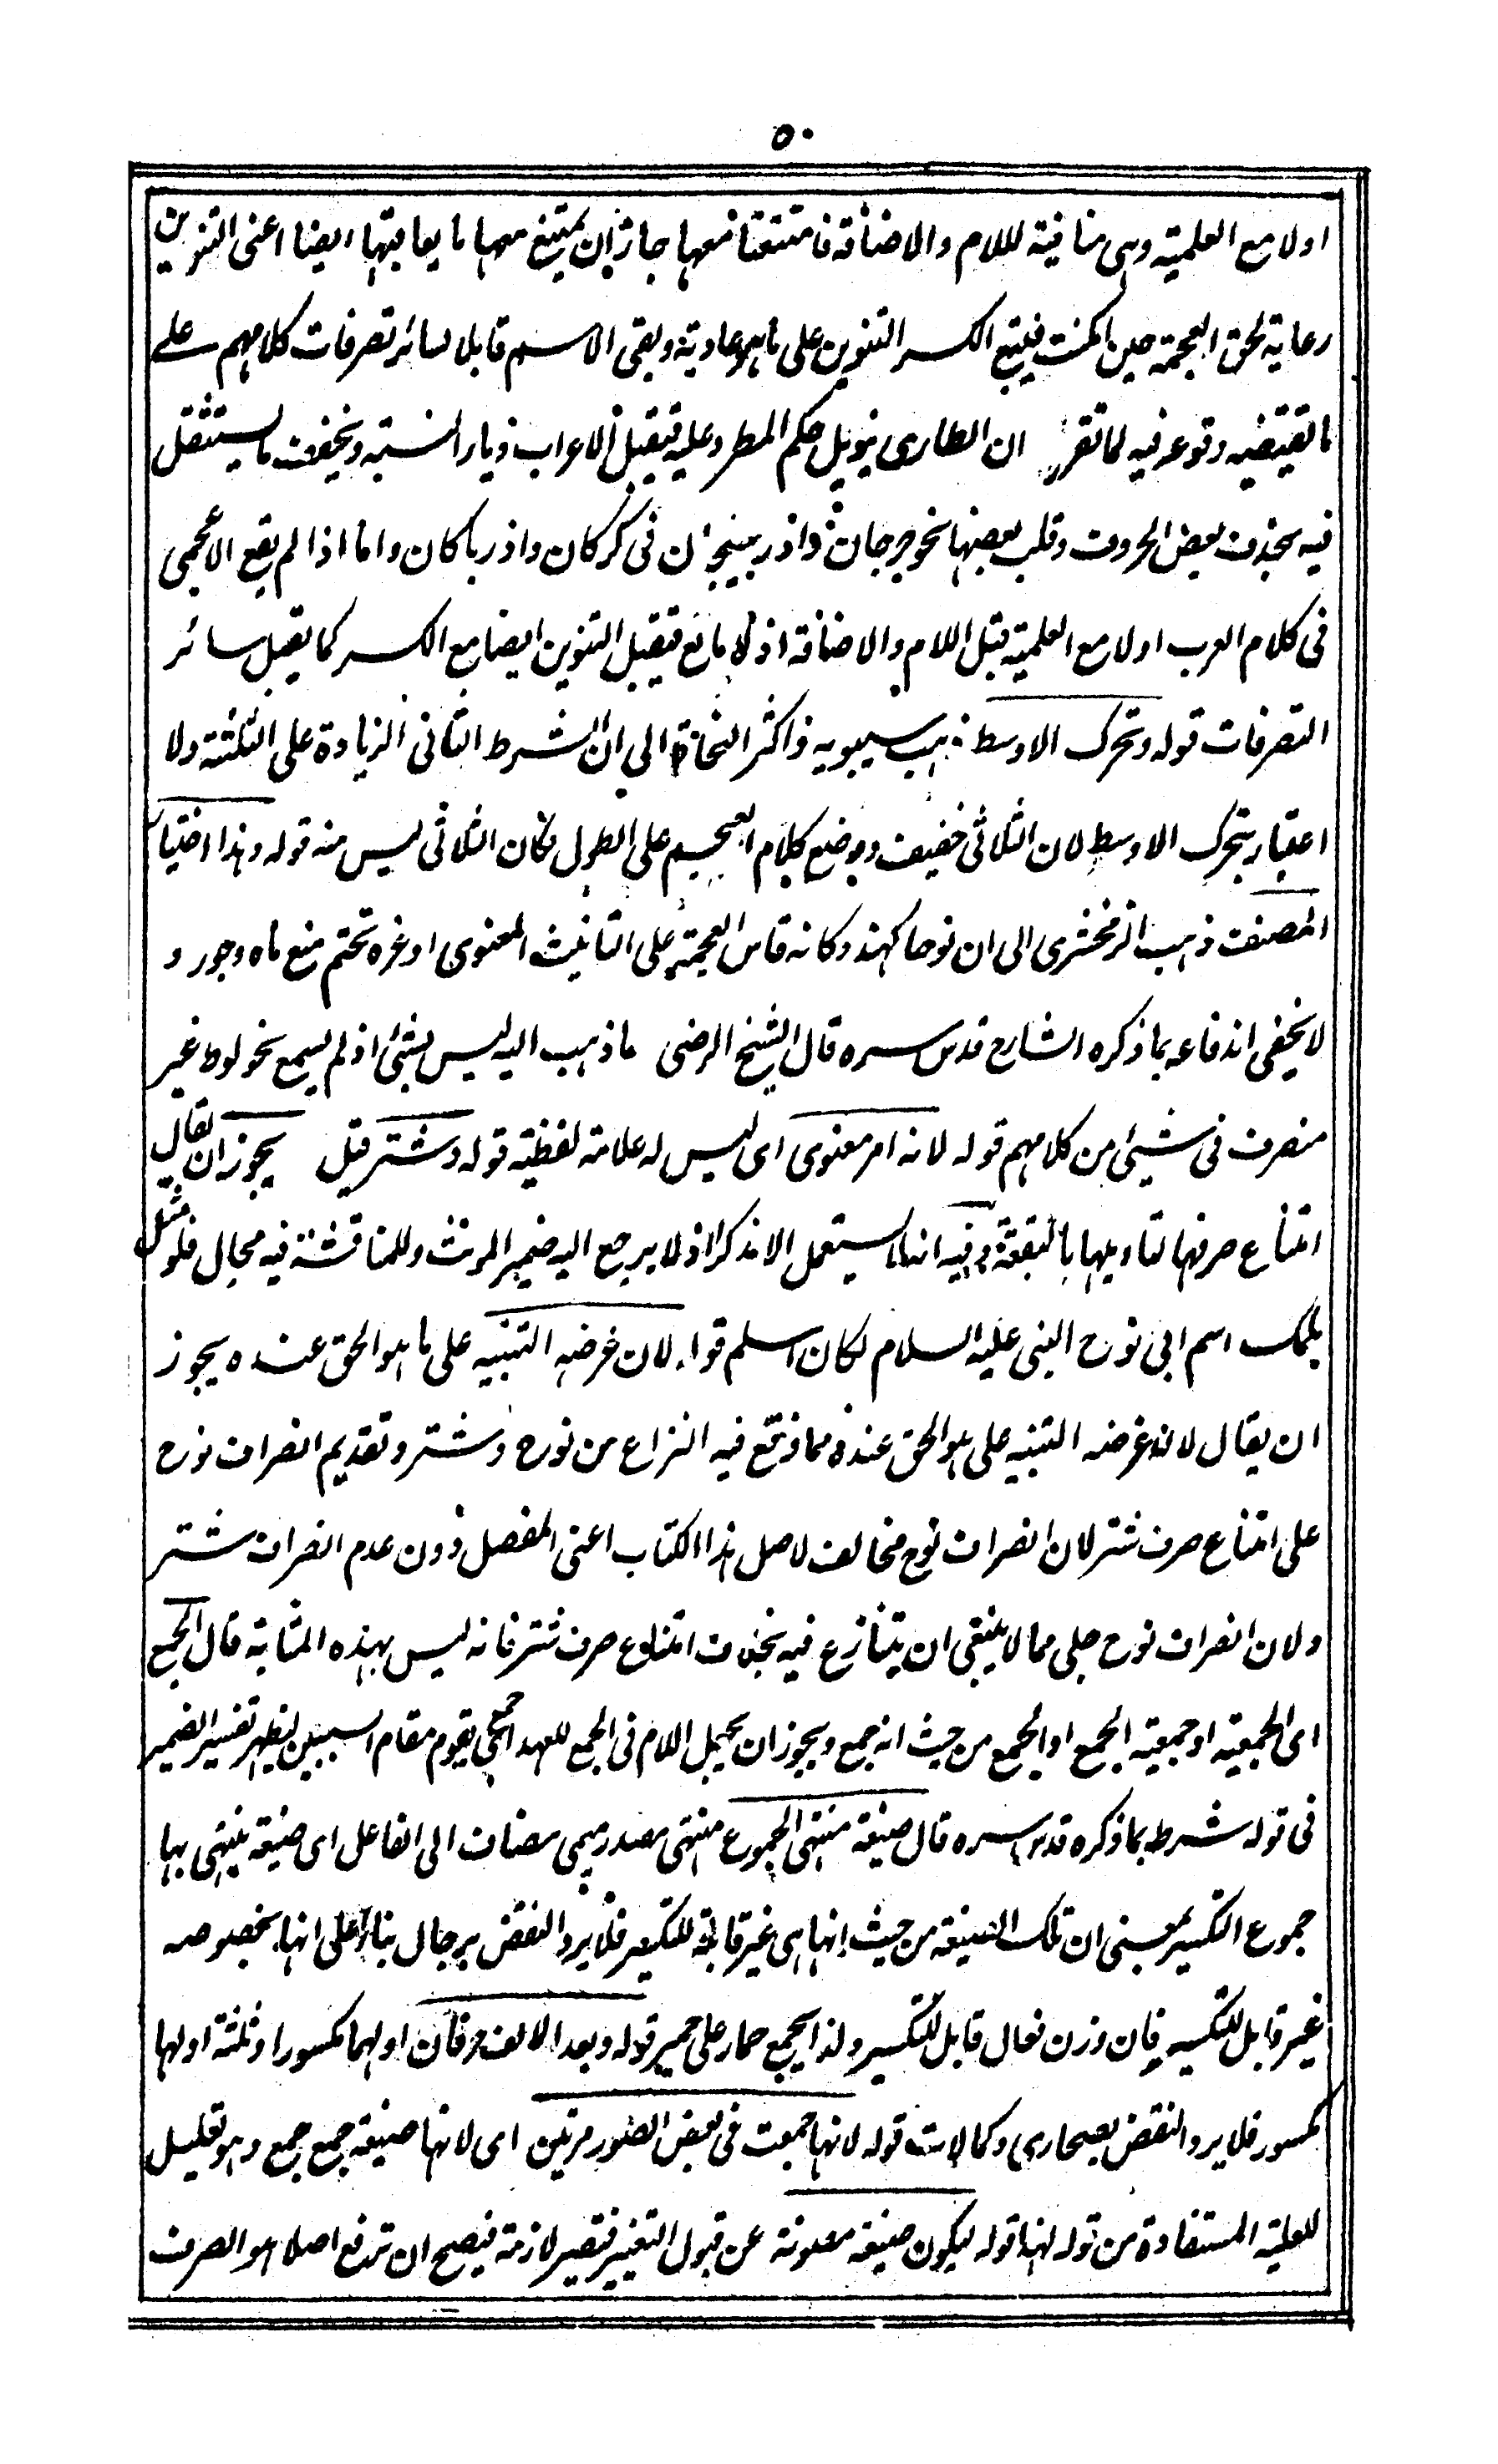 ٥٠
اولا مع العلمية وهى منافية للام والاضافة فامتنعتا معها جاز ان يمتنع معها ما يعاقبها ايضا اعنى التنوين
رعاية لحق العجمة حين امكنت فيتبع الكسر التنوين على ما هو عادية وبقى الاسم قابلا لسائر تصرفات كلامهم على
ما تقتضيه وقوعه فيه لما تقرر ان الطارى يزيل حكم المطرد عليه فيقبل الاعراب ويار النسبة وتخفيف ما يستثقل
فيه بحذف بعض الحروف وقلب بعضها نحو جرجان واذربيجان فى كركان واذرباكان واما اذا لم يقع الاعجمى
فى كلام العرب اولا مع العلمية قبل اللام والاضافة اذ لا مانع فيقبل التنوين ايضا مع الكسر كما يقبل سائر
التصرفات قوله وتحرك الاوسط ذهب سيبويه واكثر النحاة الى ان الشرط الثانى الزيادة على الثلثة ولا
اعتبار بتحرك الاوسط لان الثلاثى خفيف ووضع كلام العجم على الطول فكان الثلاثى ليس منه قوله وهذا اختيار
المصنف ذهب الزمخشرى الى ان نوحا كهند وكانه قاس العجمة على التانيث المعنوى او غره تحتم منع ماه وجور و
لا يخفى اندفاعه بما ذكره الشارح قدس سره قال الشيخ الرضى ما ذهب اليه ليس بشئ اذ لم يسمع نحو لوط غير
منصرف فى شيئ من كلامهم قوله لانه امر معنوى اى ليس له علامة لفظية قوله وشتر قيل يجوز ان يقال
امتناع صرفها لتاويلها بالبقعة وفيه انها لا يستعمل الا مذكرا اذ لا يرجع اليه ضمير المونث وللمناقشة فيه مجال فلو مثل
بلمك اسم ابى نوح النبى عليه السلام لكان اسلم قوله لان غرضه التنبيه على ما هو الحق عنده يجوز
ان يقال لان غرضه التنبيه على ما هو الحق عنده مما وقع فيه النزاع من نوح وشتر وتقديم انصراف نوح
على امتناع صرف شتر لان انصراف نوح مخالف لاصل هذا الكتاب اعنى المفصل دون عدم انصراف شتر
ولان انصراف نوح جلى مما لا ينبغى ان يتنازع فيه بخلاف امتناع صرف شتر فانه ليس بهذه المثابة قال الجمع
اى الجمعية او جمعية الجمع او الجمع من حيث انه جمع ويجوز ان يحمل اللام فى الجمع للعهد اى جمع يقوم مقام السببين ليظهر تفسير الضمير
فى قوله شرطه بما ذكره قدس سره قال صيغة منتهى الجموع منتهى مصدر ميمى مضاف الى الفاعل اى صيغة ينتهى بها
جموع التكسير بمعنى ان تلك الصيغة من حيث انها هى غير قابلة للتكسير فلا يرد النقض برجال بناء على انها بخصوصه
غير قابل للتكسير فان وزن فعال قابل للتكسير ولذا يجمع حمار على حمير قوله وبعد الالف حرفان اولهما مكسور او ثلثة اولها
مكسور فلا يرد النقض بصحارى وكمالات قوله لانها جمعت فى بعض الصور مرتين اى لانها صيغة جمع جمع وهو تعليل
للعلية المستفادة من قوله لهذا قوله ليكون صيغة مصونة عن قبول التغيير فتصير لازمة فيصح ان تدفع اصلا هو الصرف